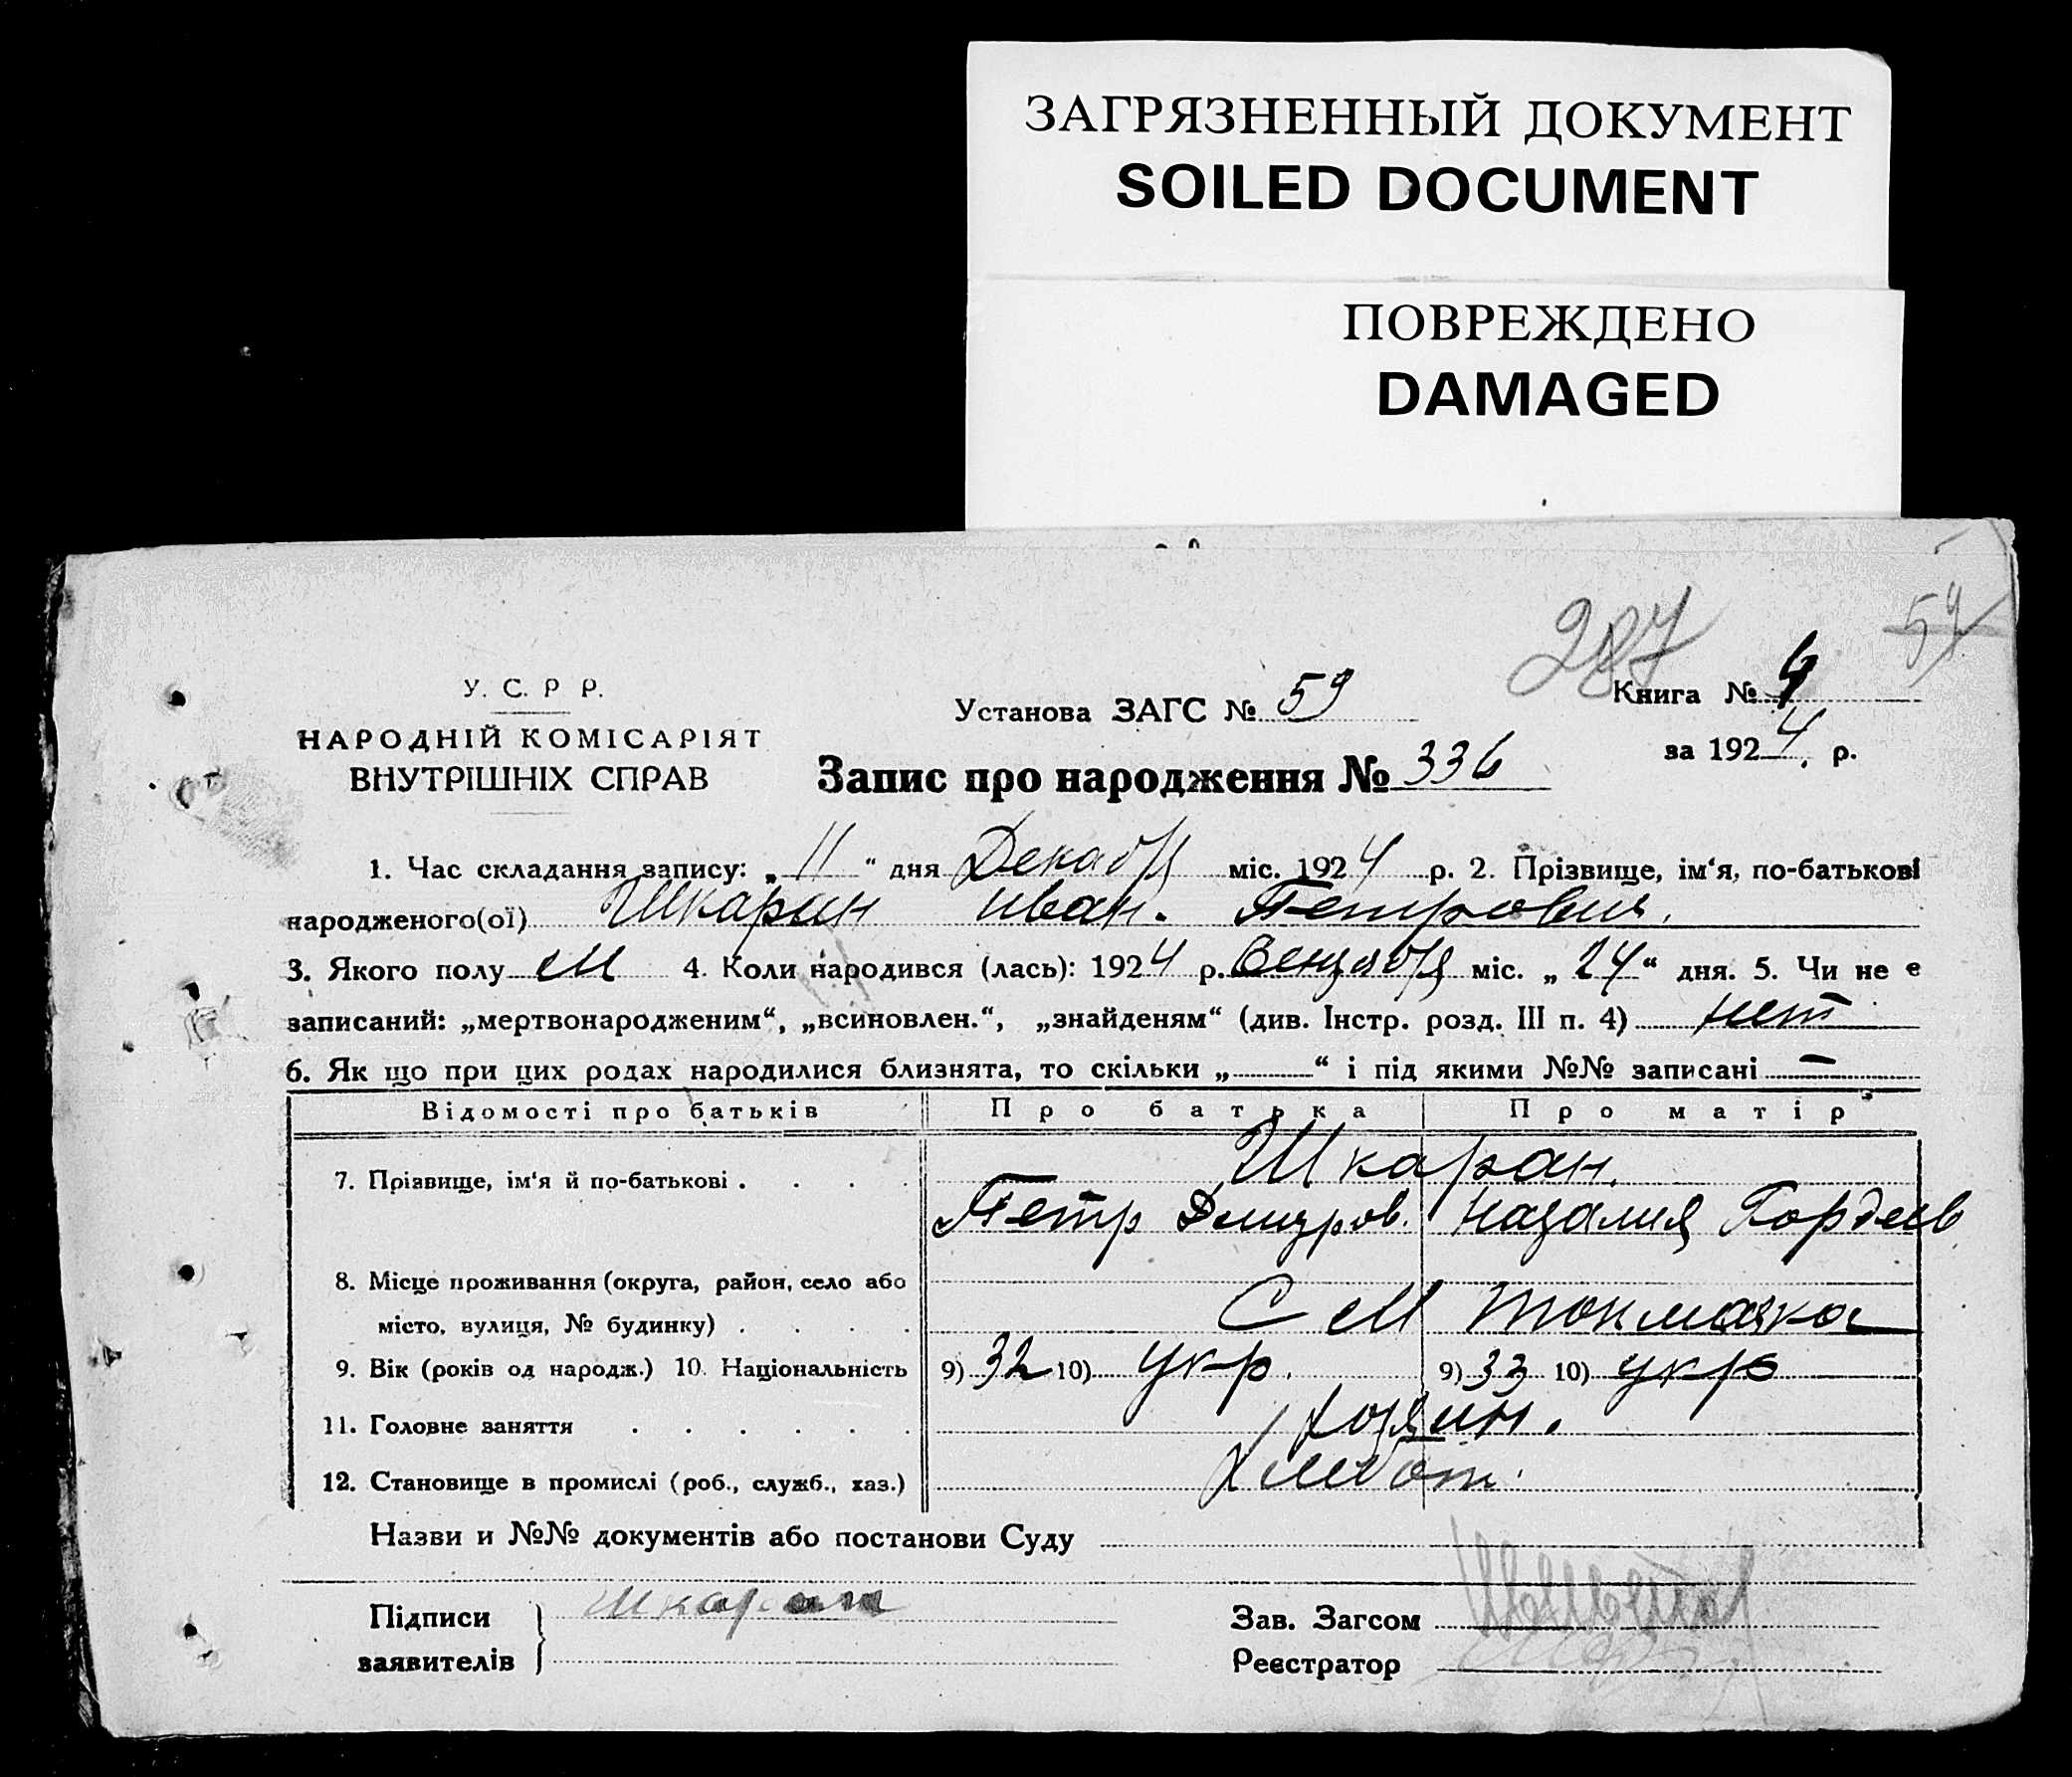 ЗАГРЯЗНЕННЫЙ ДОКУМЕНТ
SOILED DOCUMENT
ПОВРЕЖДЕНО
DAMAGED
287
У. С. Р Р.
НАРОДНІЙ КОМІСАРІЯТ
ВНУТРІШНІХ СПРАВ
Установа ЗАГС № 59
Запис про народження № 336
Книга №
за 1924 р.
1. Час складання запису: „ 11 “ дня Декабря міс. 1924 р. 2. Прізвище, ім‘я, по-батькові
народженого(ої) Шкаран Иван. Петрович.
3. Якого полу М 4. Коли народився (лась): 1924 р. Сентября міс. „ 24 “ дня. 5. Чи не є
записаний: „мертвонародженим“, „всиновлен.“, „знайденям“ (див. Інстр. розд. III п. 4) нет
6. Як що при цих родах народилися близнята, то скільки „ “ і під якими №№ записані —
Відомості про батьків Про батька Про матір
7. Прізвище, ім‘я й по-батькові . . . . Шкаран.
Петр Дмитров. Наталия Гордеев
8. Місце проживання (округа, район, село або
місто, вулиця, № будинку) . . . . С М Токмачка
9. Вік (років од народж.) 10. Національність 9) 32 10) укр. 9) 33 10) укр
11. Головне заняття . . . . . . Хозяин.
12. Становище в промислі (роб., служб., хаз.) Хлебоп.
Назви и №№ документів або постанови Суду
Підписи Шкаран
заявителів
Зав. Загсом
Реєстратор